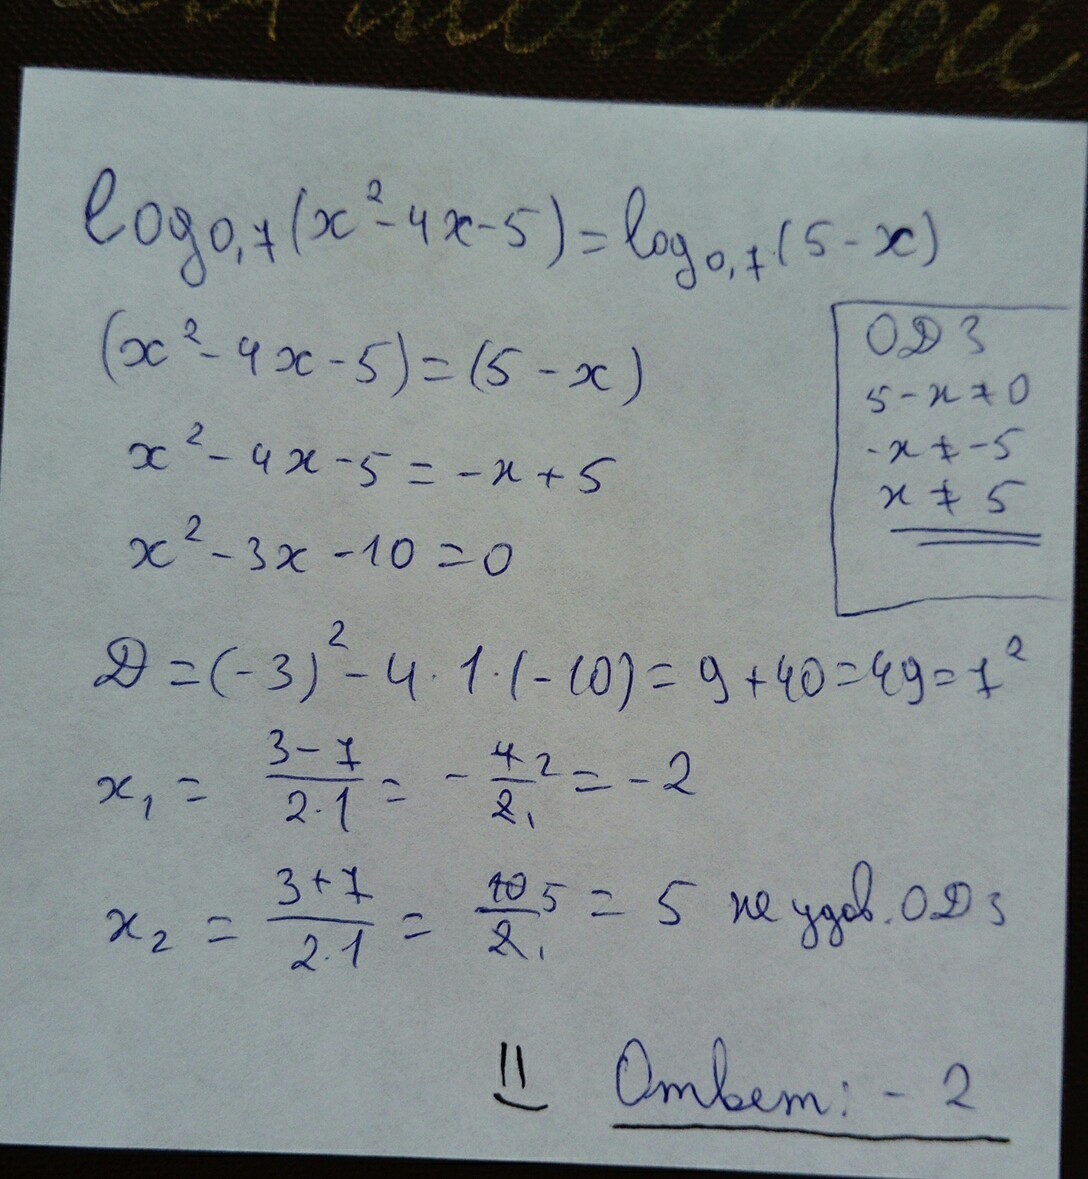 log₀,₇(x²-4x-5)=log₀,₇(5-x)
(x²-4x-5)=(5-x)
x²-4x-5=-x+5
x²-3x-10=0
ОДЗ
5-x≠0
-x≠-5
x≠5
D=(-3)²-4·1·(-10)=9+40=49=7²
x₁ = (3-7)/(2·1) = -4/2 = -2
x₂ = (3+7)/(2·1) = 10/2 = 5 не удов. ОДЗ
Ответ: -2